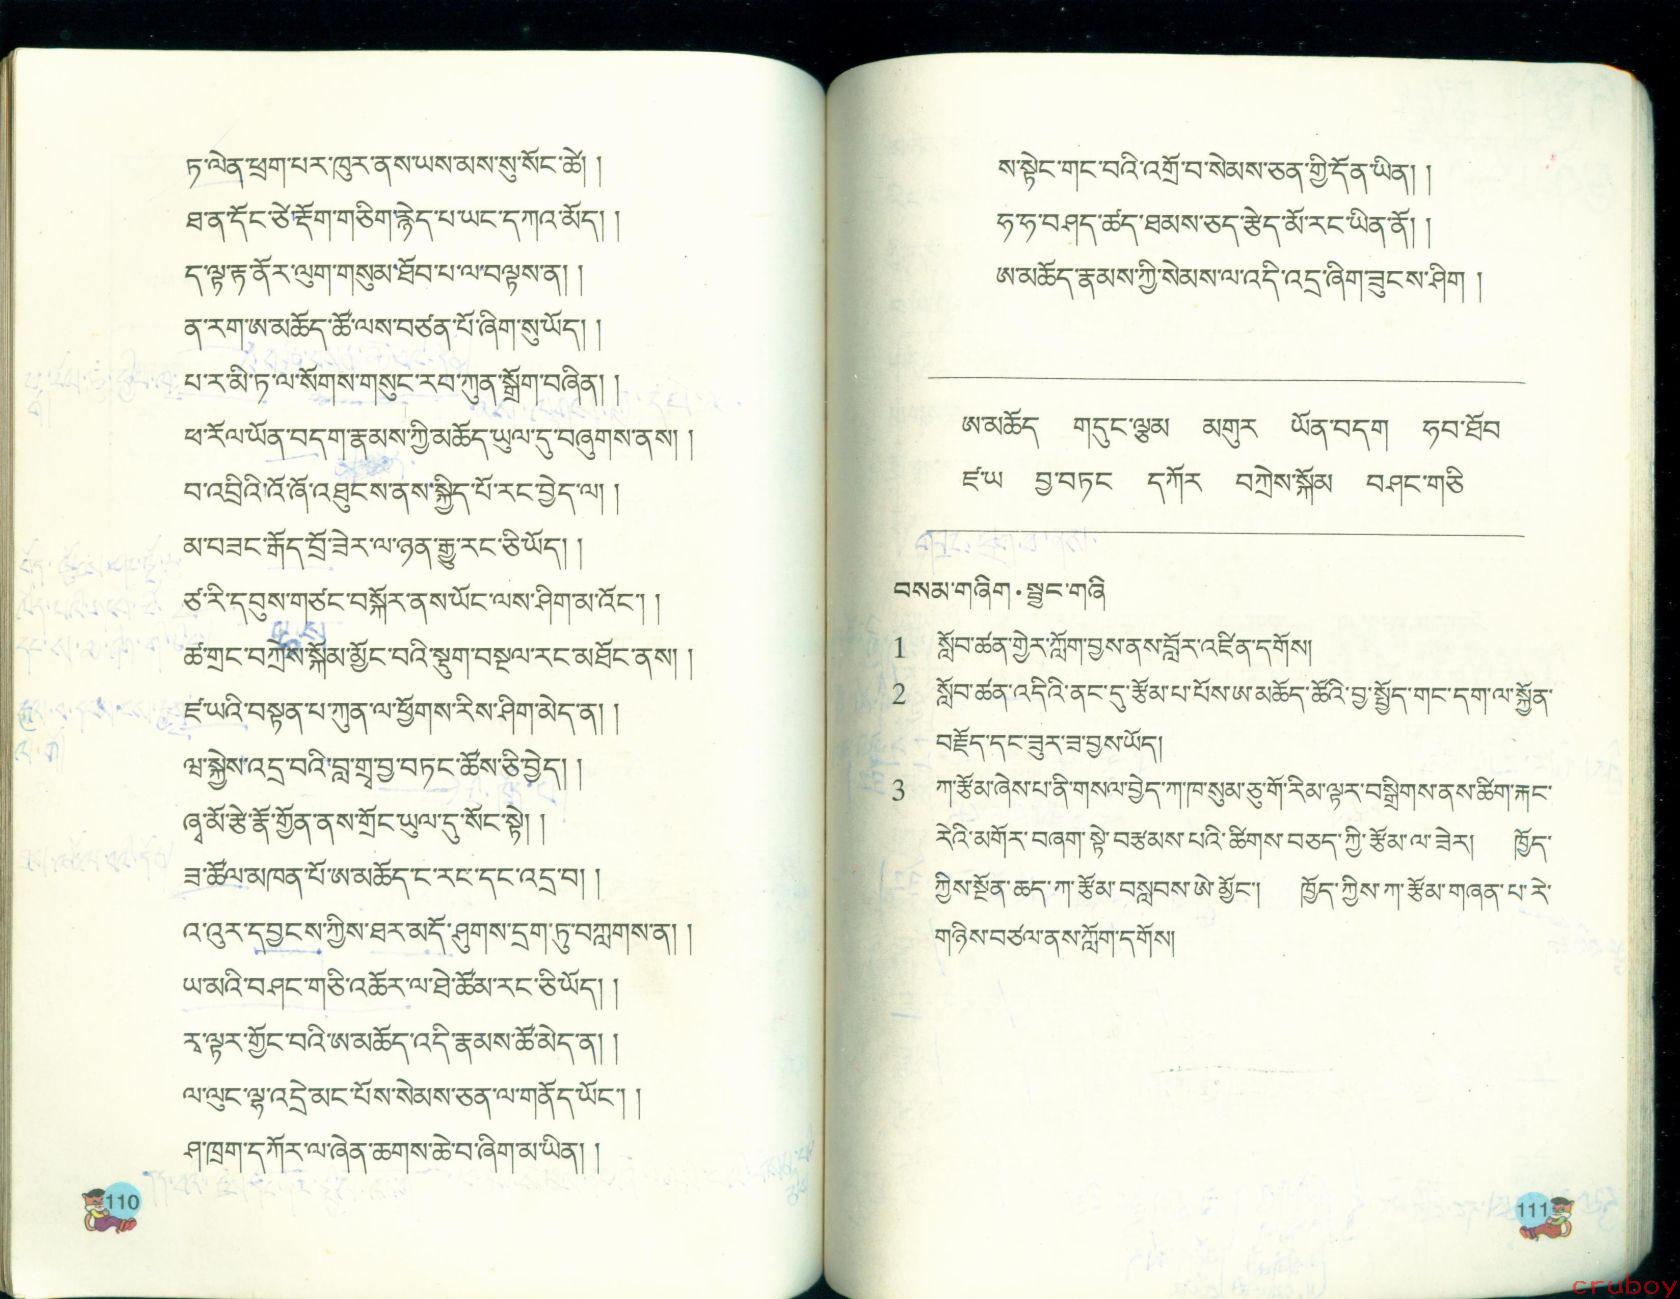 ཏ་ལེན་ཕྲག་པར་ཁུར་ནས་ཡས་མས་སུ་སོང་ཚེ། །
ཐ་ན་དོང་ཙེ་རྡོག་གཅིག་རྙེད་པ་ཡང་དཀའ་མོད། །
ད་ལྟ་རྟ་ནོར་ལུག་གསུམ་ཐོབ་པ་ལ་བལྟས་ན། །
ན་རག་ཨ་མཆོད་ཚོ་ལས་བཙན་པོ་ཞིག་སུ་ཡོད། །
པ་ར་མི་ཏ་ལ་སོགས་གསུང་རབ་ཀུན་སྒྲོག་བཞིན། །
ཕ་རོལ་ཡོན་བདག་རྣམས་ཀྱི་མཆོད་ཡུལ་དུ་བཞུགས་ནས། །
བ་འབྲིའི་འོ་ཞོ་འཐུངས་ནས་སྐྱིད་པོ་རང་བྱེད་ལ། །
མ་བཟང་རྒོད་པོ་ཟེར་ལ་ཉན་རྒྱུ་རང་ཅི་ཡོད། །
ཙ་རི་དབུས་གཙང་བསྐོར་ནས་ཡོང་ལས་ཤིག་མ་འོང་། །
ཚ་གྲང་བཀྲེས་སྐོམ་མྱོང་བའི་སྡུག་བསྔལ་རང་མཐོང་ནས། །
ཛ་ཡའི་བསྟན་པ་ཀུན་ལ་ཕྱོགས་རིས་ཤིག་མེད་ན། །
ཝ་སྐྱེས་འདྲ་བའི་བླ་གྲྭ་བྱ་བཏང་ཚོས་ཅི་བྱེད། །
ཞྭ་མོ་རྩེ་རྣོ་གྱོན་ནས་གྲོང་ཡུལ་དུ་སོང་སྟེ། །
ཟ་ཚོལ་མཁན་པོ་ཨ་མཆོད་ང་རང་དང་འདྲ་བ། །
འ་འུར་དབྱངས་ཀྱིས་ཐར་མདོ་ཤུགས་དྲག་ཏུ་བཀླགས་ན། །
ཡ་མའི་བཤང་གཅི་འཚོར་ལ་ཐེ་ཚོམ་རང་ཅི་ཡོད། །
རྭ་ལྟར་གྱོང་བའི་ཨ་མཆོད་འདི་རྣམས་ཚོ་མེད་ན། །
ལ་ལུང་ལྷ་འདྲེ་མང་པོས་སེམས་ཅན་ལ་གནོད་ཡོང་། །
ཤ་ཁྲག་དཀོར་ལ་ཞེན་ཆགས་ཆེ་བ་ཞིག་མ་ཡིན། །
110
ས་སྟེང་གང་བའི་འགྲོ་བ་སེམས་ཅན་གྱི་དོན་ཡིན། །
ཧ་ཧ་བཤད་ཚད་ཐམས་ཅད་རྩེད་མོ་རང་ཡིན་ནོ། །
ཨ་མཆོད་རྣམས་ཀྱི་སེམས་ལ་འདི་འདྲ་ཞིག་ཟུངས་ཤིག །
ཨ་མཆོད གདུང་ལྕམ མགུར ཡོན་བདག ཧབ་ཐོབ
ཛ་ཡ བྱ་བཏང དཀོར བཀྲེས་སྐོམ བཤང་གཅི
བསམ་གཞིག·སྦྱང་གཞི
1 སློབ་ཚན་གྱེར་ཀློག་བྱས་ནས་བློར་འཛིན་དགོས།
2 སློབ་ཚན་འདིའི་ནང་དུ་རྩོམ་པ་པོས་ཨ་མཆོད་ཚོའི་བྱ་སྤྱོད་གང་དག་ལ་སྐྱོན་
བརྗོད་དང་ཟུར་ཟ་བྱས་ཡོད།
3 ཀ་རྩོམ་ཞེས་པ་ནི་གསལ་བྱེད་ཀ་ཁ་སུམ་ཅུ་གོ་རིམ་ལྟར་བསྒྲིགས་ནས་ཚིག་རྐང་
རེའི་མགོར་བཞག་སྟེ་བརྩམས་པའི་ཚིགས་བཅད་ཀྱི་རྩོམ་ལ་ཟེར། ཁྱོད་
ཀྱིས་སྔོན་ཆད་ཀ་རྩོམ་བསླབས་ཨེ་མྱོང་། ཁྱོད་ཀྱིས་ཀ་རྩོམ་གཞན་པ་རེ་
གཉིས་བཙལ་ནས་ཀློག་དགོས།
111
cruboy